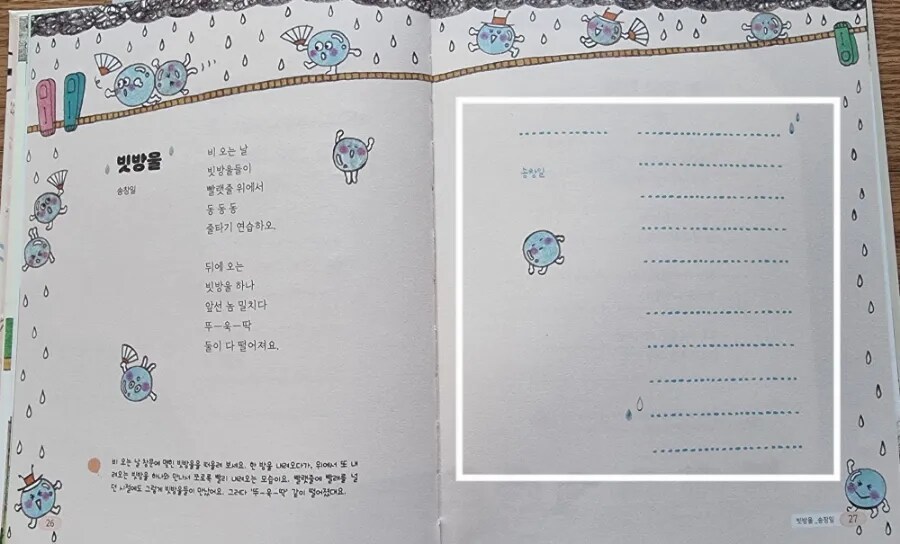 빗방울
송창일
비 오는 날
빗방울들이
빨랫줄 위에서
동 동 동
줄타기 연습하오.
뒤에 오는
빗방울 하나
앞선 놈 밀치다
뚜—욱—딱
둘이 다 떨어져요.
비 오는 날 창문에 맺힌 빗방울을 떠올려 보세요. 한 방울 내려오다가, 위에서 또 내
려오는 빗방울 하나와 만나서 쪼로록 빨리 내려오는 모습이요. 빨랫줄에 빨래를 널
던 시절에도 그렇게 빗방울들이 만났어요. 그러다 '뚜-욱-딱' 같이 떨어졌대요.
26
송창일
빗방울_송창일 27